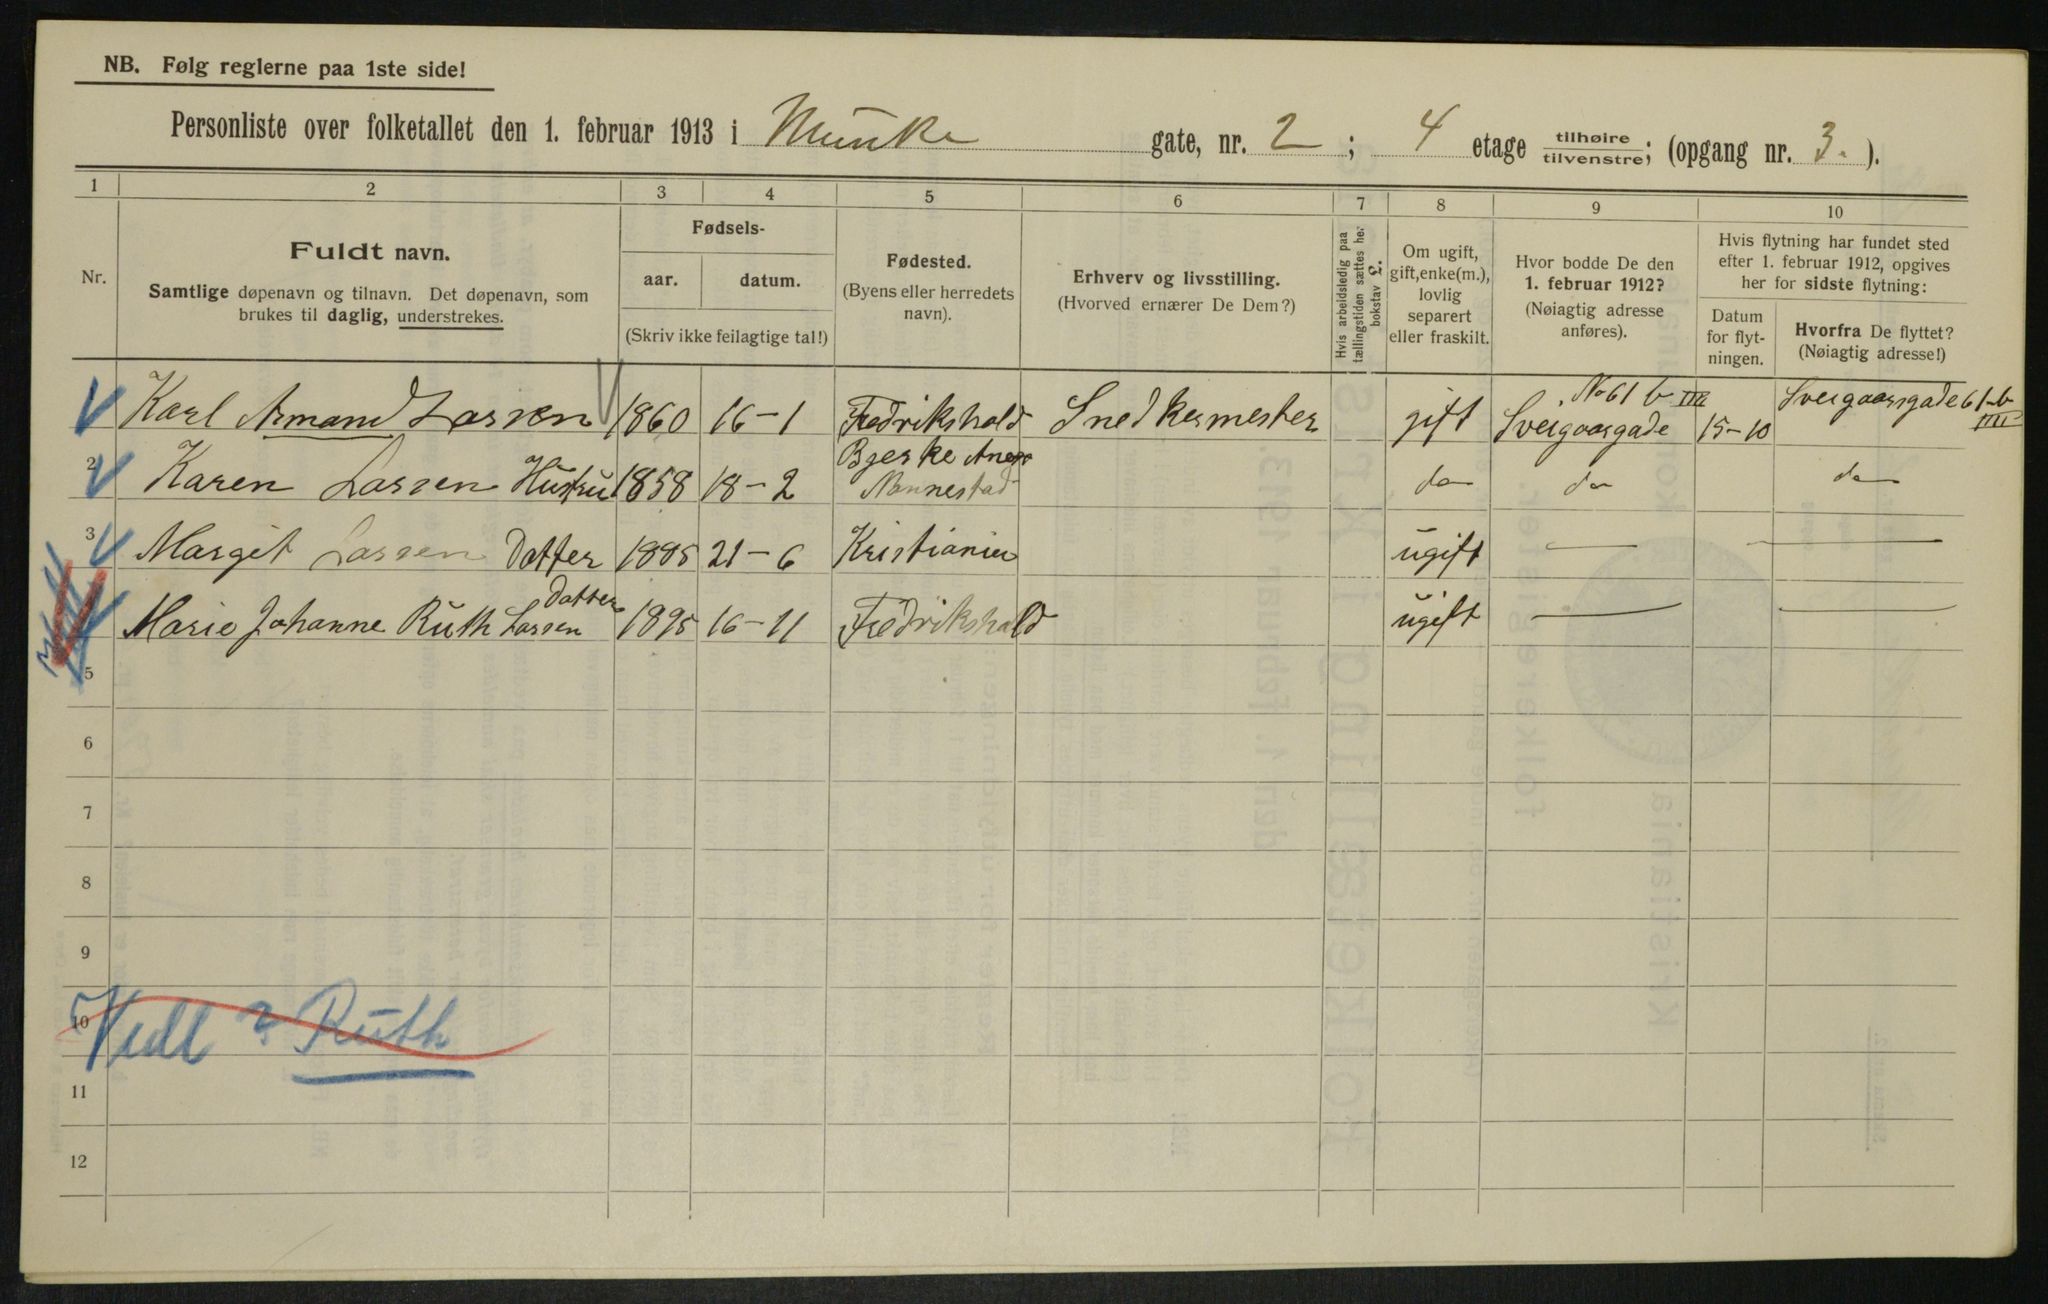 NB. Følg reglerne paa 1ste side!
Personliste over folketallet den 1. februar 1913 i Munke gate, nr. 2; 4 etage tilhøire tilvenstre; (opgang nr. 3.).
1 2 3 4 5 6 7 8 9 10
Nr.
Fuldt navn.
Samtlige døpenavn og tilnavn. Det døpenavn, som
brukes til daglig, understrekes.
Fødsels-
aar. datum.
(Skriv ikke feilagtige tal!)
Fødested.
(Byens eller herredets
navn).
Erhverv og livsstilling.
(Hvorved ernærer De Dem?)
Hvis arbeidsledig paa
tællingstiden sættes her
bokstav L.
Om ugift,
gift, enke(m.),
lovlig
separert
eller fraskilt.
Hvor bodde De den
1. februar 1912?
(Nøiagtig adresse
anføres).
Hvis flytning har fundet sted
efter 1. februar 1912, opgives
her for sidste flytning:
Datum
for flyt-
ningen.
Hvorfra De flyttet?
(Nøiagtig adresse!)
No 61 b III
Karl Armand Larsen 1860 16-1 Fredrikshald Snedkermester gift Sveigaarsgade 15-10 Sveigaarsgade 61-b III
2 Karen Larsen Hustru 1858 18-2 Nannestad do do do
3 Margit Larsen Datter 1885 21-6 Kristiania ugift — —
Marie Johanne Ruth Larsen Datter 1895 16-11 Fredrikshald ugift — —
5
6
7
8
9
10 Vedl Ruth
11
12